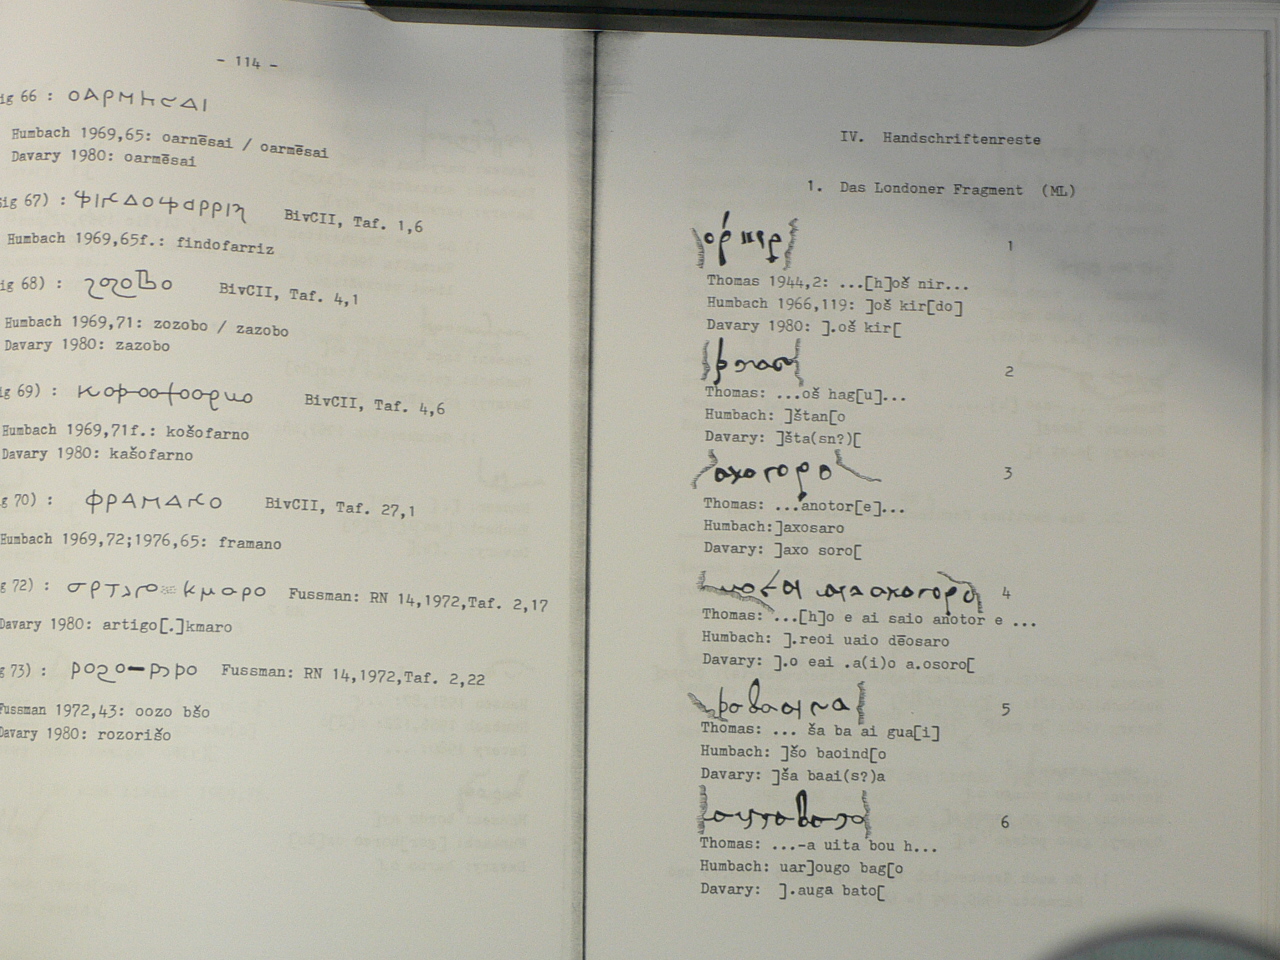 - 114 -
ig 66 : οΑΡΜΗСΑΙ
Humbach 1969,65: oarnēsai / oarmēsai
Davary 1980: oarmēsai
ig 67) : BivCII, Taf. 1,6
Humbach 1969,65f.: findofarriz
ig 68) : BivCII, Taf. 4,1
Humbach 1969,71: zozobo / zazobo
Davary 1980: zazobo
g 69) : BivCII, Taf. 4,6
Humbach 1969,71f.: košofarno
Davary 1980: kašofarno
g 70) : BivCII, Taf. 27,1
Humbach 1969,72;1976,65: framano
g 72) : Fussman: RN 14,1972,Taf. 2,17
Davary 1980: artigo[.]kmaro
g 73) : Fussman: RN 14,1972,Taf. 2,22
Fussman 1972,43: oozo bšo
Davary 1980: rozorišo
IV. Handschriftenreste
1. Das Londoner Fragment (ML)
1
Thomas 1944,2: ...[h]oš nir...
Humbach 1966,119: ]oš kir[do]
Davary 1980: ].oš kir[
2
Thomas: ...oš hag[u]...
Humbach: ]štan[o
Davary: ]šta(sn?)[
3
Thomas: ...anotor[e]...
Humbach:]axosaro
Davary: ]axo soro[
4
Thomas: ...[h]o e ai saio anotor e ...
Humbach: ].reoi uaio dēosaro
Davary: ].o eai .a(i)o a.osoro[
5
Thomas: ... ša ba ai gua[i]
Humbach: ]šo baoind[o
Davary: ]ša baai(s?)a
6
Thomas: ...-a uita bou h...
Humbach: uar]ougo bag[o
Davary: ].auga bato[